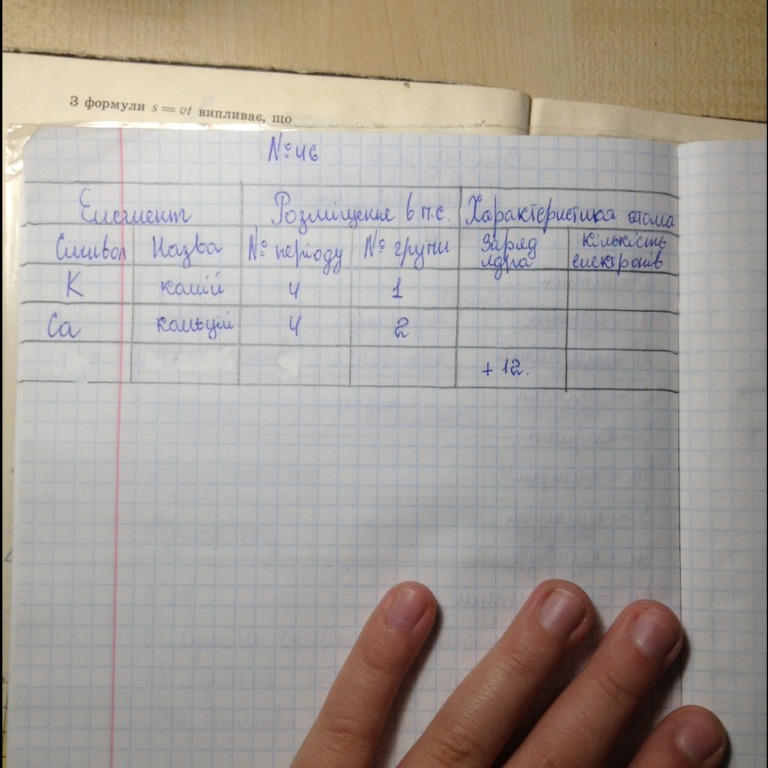 З формули s = vt випливає, що
№46
Елемент Розміщення в п.с. Характеристика атома
Символ Назва № періоду № групи Заряд ядра Кількість електронів
K калій 4 1
Ca кальцій 4 2
+12.